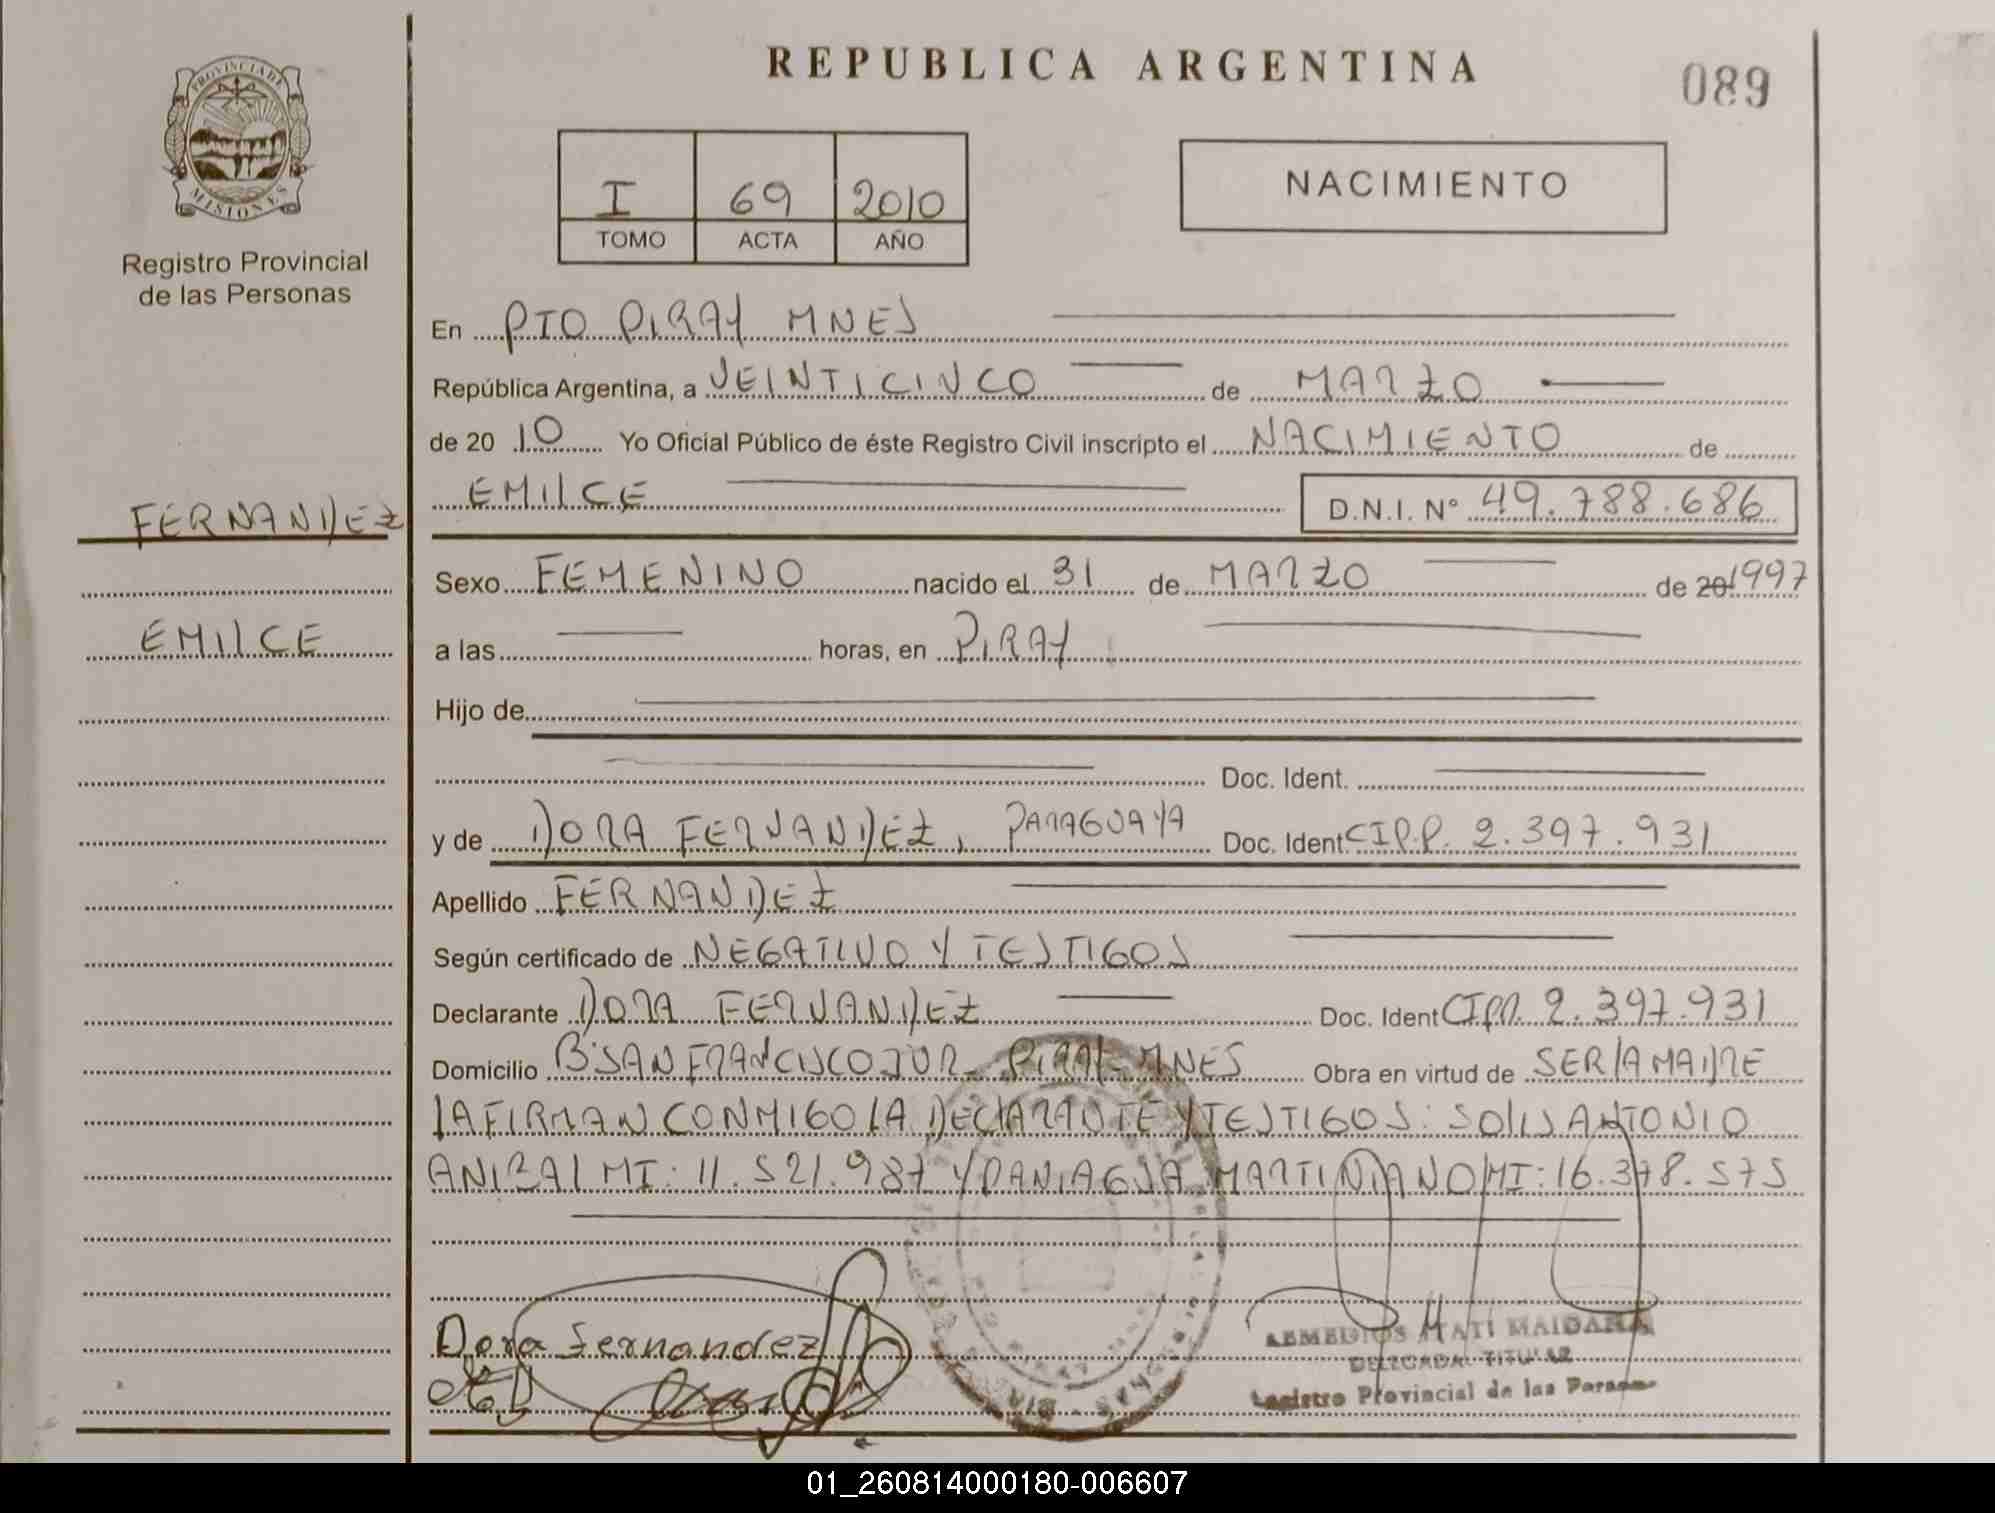 REPUBLICA ARGENTINA
089
PROVINCIA DE
MISIONES
Registro Provincial
de las Personas
I 69 2010
TOMO ACTA AÑO
NACIMIENTO
En PTO PIRAY MNES
República Argentina, a VEINTICINCO de MARZO
de 20 10 Yo Oficial Público de éste Registro Civil inscripto el NACIMIENTO de
EMILCE D.N.I. N° 49.788.686
FERNANDEZ
Sexo FEMENINO nacido el 31 de MARZO de 20 1997
EMILCE
a las horas, en PIRAY
Hijo de
Doc. Ident.
y de DORA FERNANDEZ, PARAGUAYA Doc. Ident CIP.P. 2.397.931
Apellido FERNANDEZ
Según certificado de NEGATIVO Y TESTIGOS
Declarante DORA FERNANDEZ Doc. Ident CIPP. 2.397.931
Domicilio B°SAN FRANCISCO JUR PIRAY MNES Obra en virtud de SER LA MADRE
LA FIRMAN CONMIGO LA DECLARANTE Y TESTIGOS: SOLIS ANTONIO
ANIBAL MI: 11.521.987 Y PANIAGUA MARTINIANO MI: 16.378.575
Dora Fernandez
REMEDIOS ITATI MAIDANA
DELEGADA TITULAR
Registro Provincial de las Personas
01_260814000180-006607